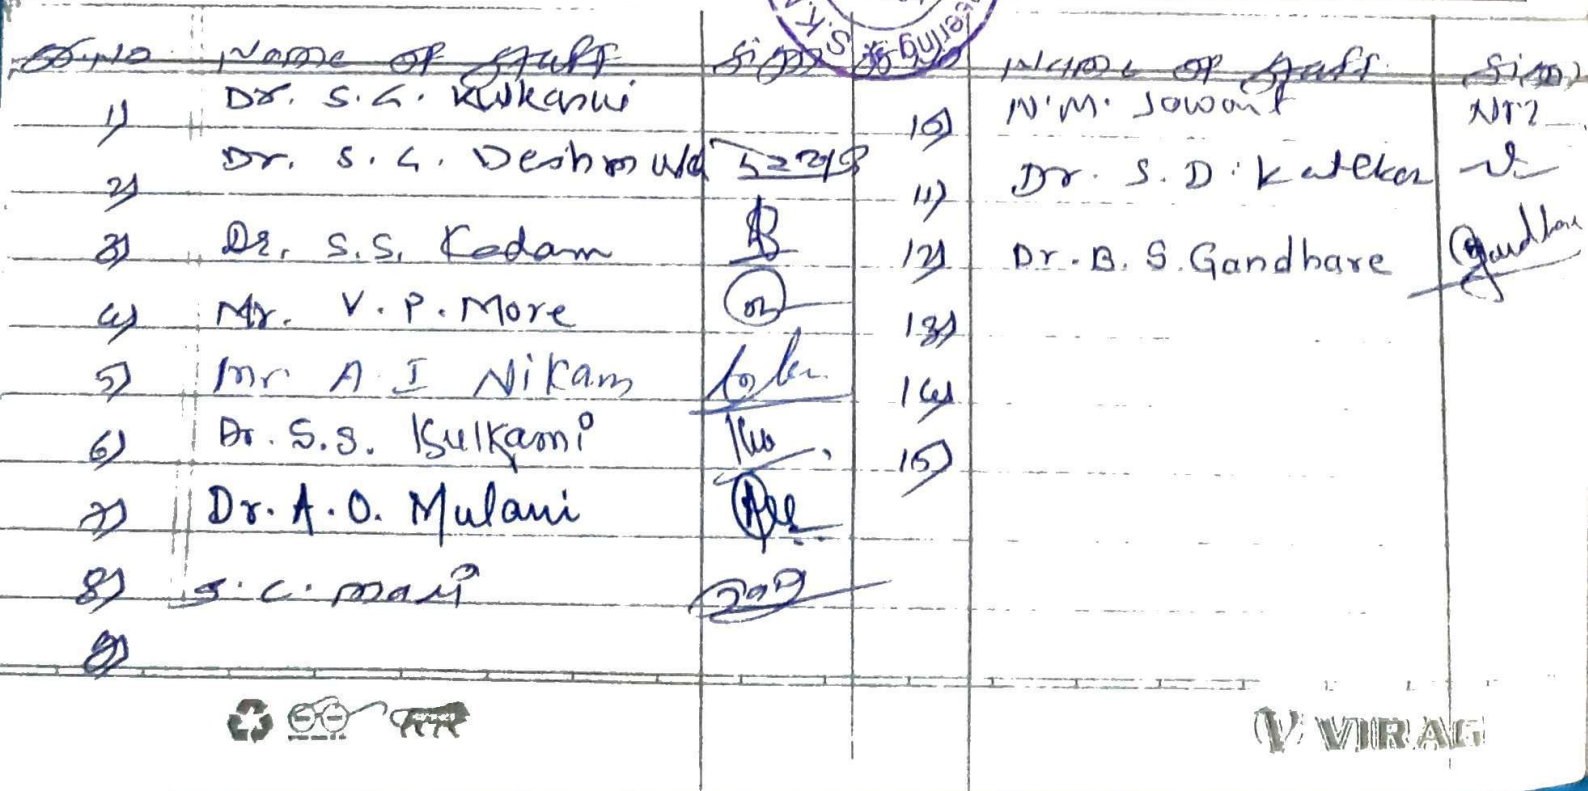 Sr.No Name of Staff Sign Sr.No Name of Staff Sign
1) Dr. S. G. Kulkarni 10) N. M. Sawant
2) Dr. S. G. Deshmukh 11) Dr. S. D. Katekar
3) Dr. S.S. Kadam 12) Dr. B. S. Gandhare Gandhare
4) Mr. V. P. More 13)
5) Mr. A I Nikam 14)
6) Dr. S.S. Kulkarni 15)
7) Dr. A. O. Mulani
8) S. C. Mali
9)
VIRAG